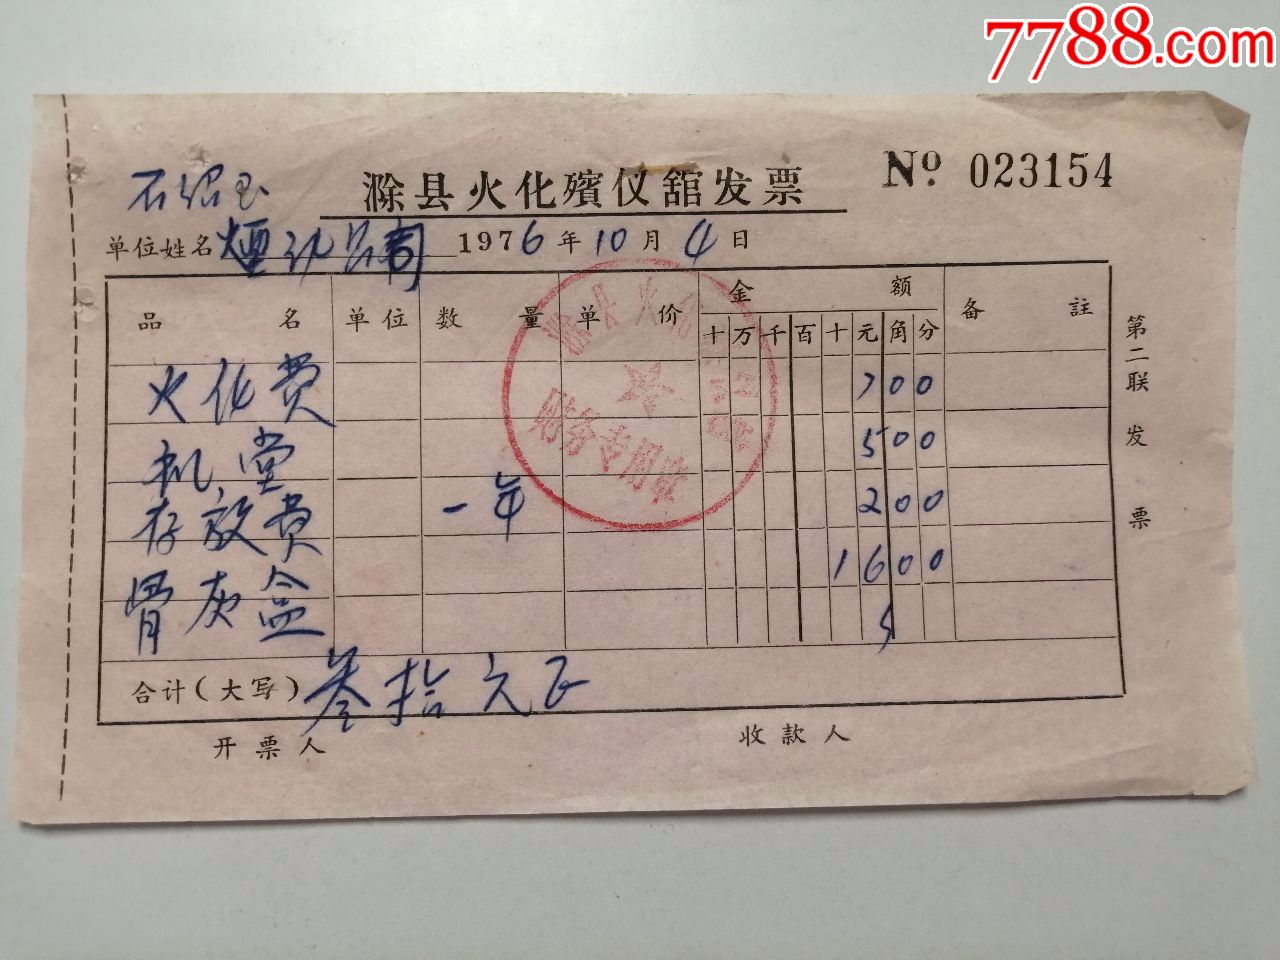 7788.com
滁县火化殯仪舘发票 No 023154
石绍玉
单位姓名 煙 公司 1976年10月4日
品名 单位 数量 单价 金额 备註
十万千百十元角分
火化费 700
机堂 500
存放费 一年 200
骨灰盒 1600
合计(大写) 叁拾元正
开票人 收款人
第二联发票
滁县火
财务专用章